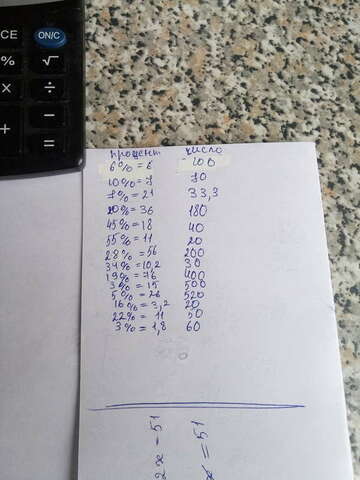 CE ON/C
% √
× ÷
−
+ =
процент число
6%=6 100
10%=7 70
7%=21 33,3
20%=36 180
45%=18 40
55%=11 20
28%=56 200
34%=10,2 30
19%=76 400
3%=15 500
5%=26 520
16%=3,2 20
22%=11 50
3%=1,8 60
x=51